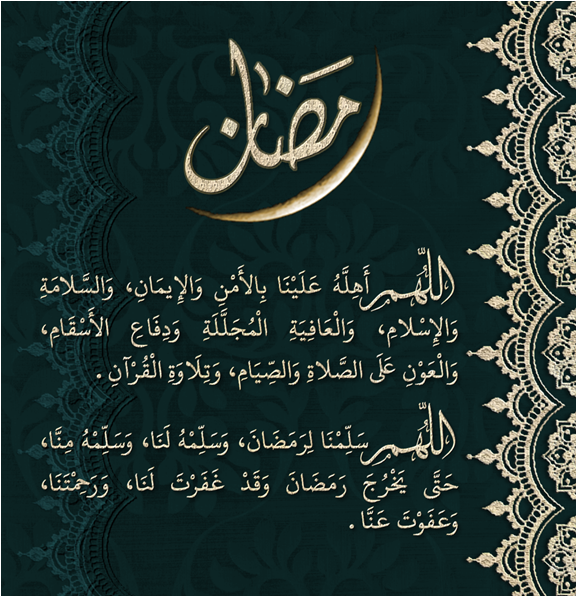 رمضان
اللَّهُمَّ أَهِلَّهُ عَلَيْنَا بِالأَمْنِ وَالإِيمَانِ، وَالسَّلامَةِ
وَالإِسْلامِ، وَالْعَافِيَةِ الْمُجَلَّلَةِ وَدِفَاعِ الأَسْقَامِ،
وَالْعَوْنِ عَلَى الصَّلاةِ وَالصِّيَامِ، وَتِلَاوَةِ الْقُرْآنِ .
اللَّهُمَّ سَلِّمْنَا لِرَمَضَانَ، وَسَلِّمْهُ لَنَا، وَسَلِّمْهُ مِنَّا،
حَتَّى يَخْرُجَ رَمَضَانَ وَقَدْ غَفَرْتَ لَنَا، وَرَحِمْتَنَا،
وَعَفَوْتَ عَنَّا .